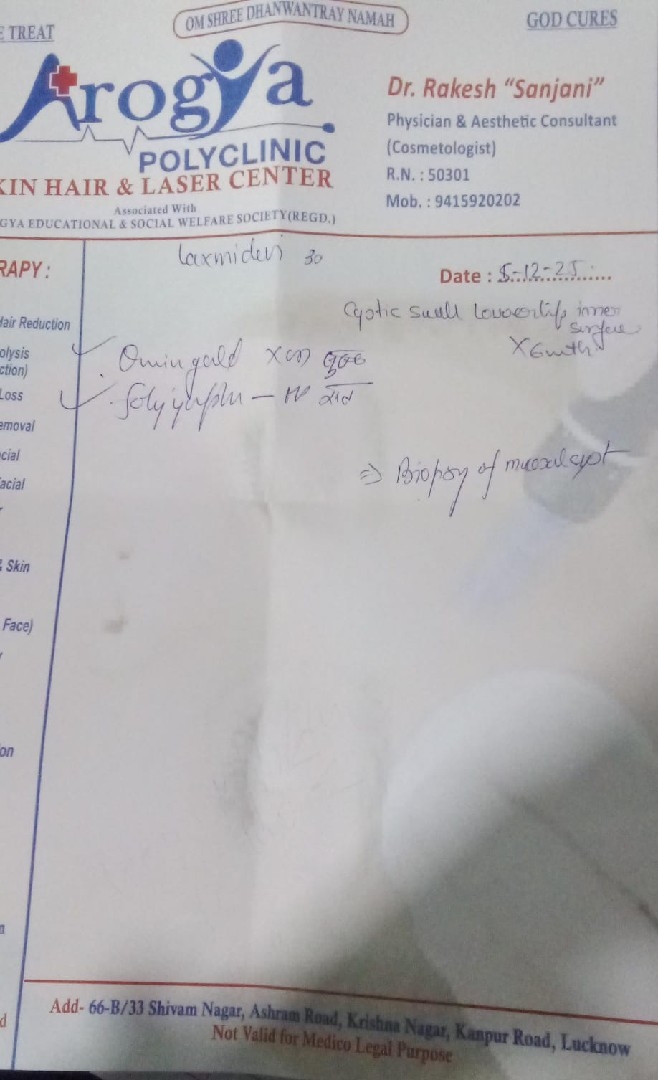 E TREAT
OM SHREE DHANWANTRAY NAMAH
GOD CURES
Arogya
POLYCLINIC
KIN HAIR & LASER CENTER
Associated With
GYA EDUCATIONAL & SOCIAL WELFARE SOCIETY(REGD.)
Dr. Rakesh “Sanjani”
Physician & Aesthetic Consultant
(Cosmetologist)
R.N. : 50301
Mob. : 9415920202
RAPY :
Hair Reduction
olysis
ction)
Loss
emoval
cial
acial
& Skin
Face)
on
Laxmidevi 30
Date : 5-12-25
Cystic swell lower lip inner
surface
X 6 mth
सुबह
शाम
⇒ Biopsy of mucosal cyst
Add- 66-B/33 Shivam Nagar, Ashram Road, Krishna Nagar, Kanpur Road, Lucknow
Not Valid for Medico Legal Purpose